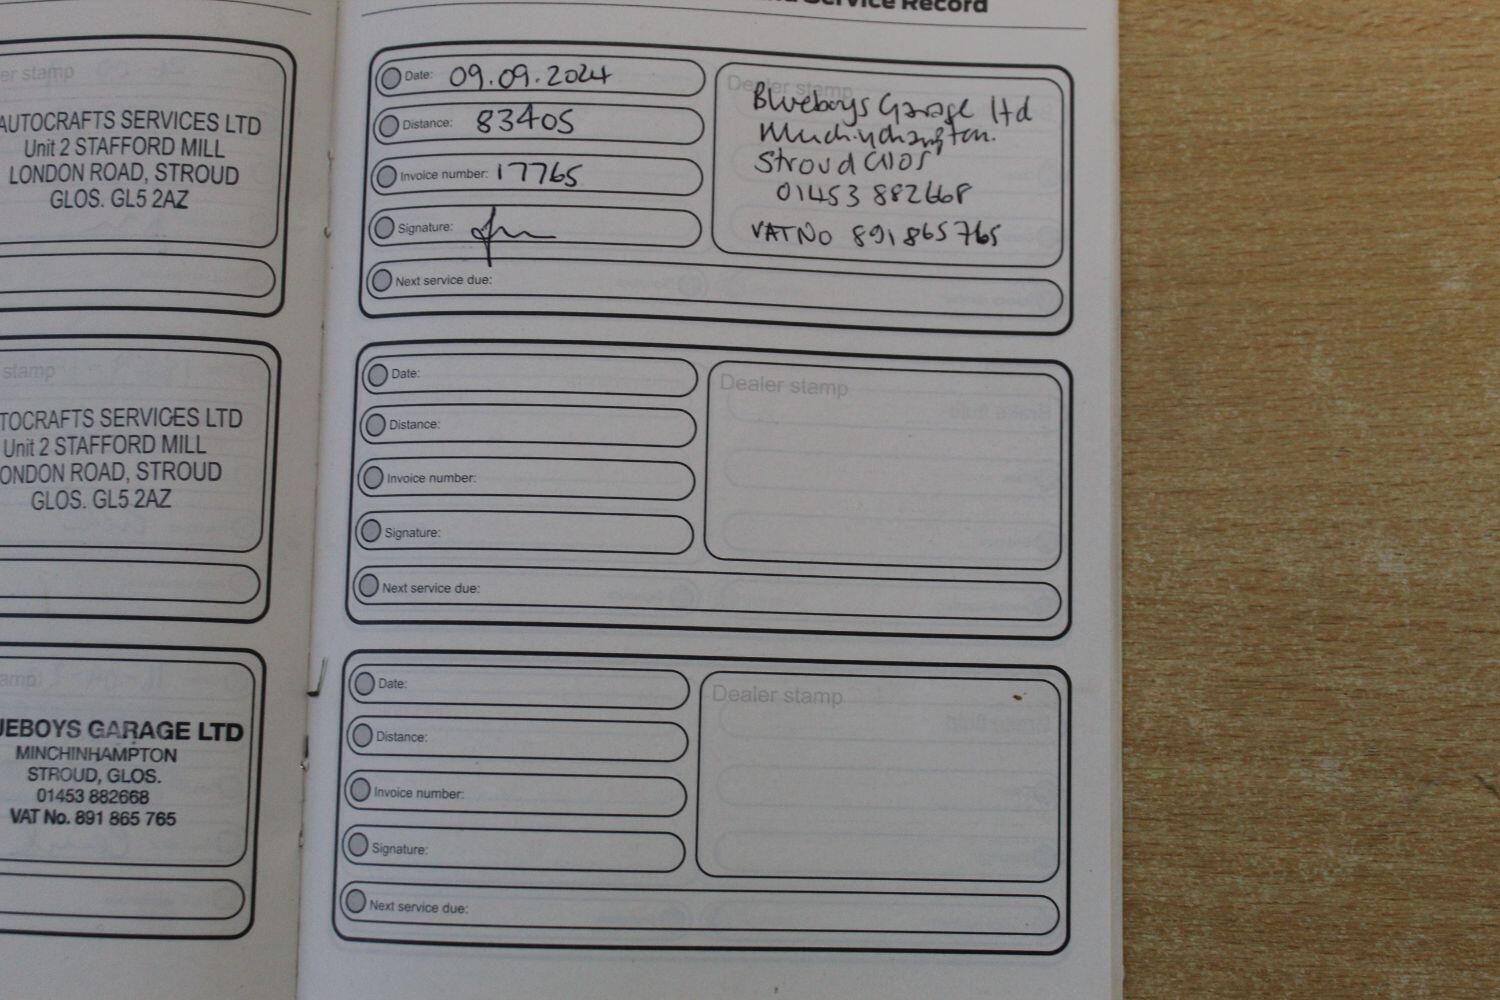 Service Record
er stamp
AUTOCRAFTS SERVICES LTD
Unit 2 STAFFORD MILL
LONDON ROAD, STROUD
GLOS. GL5 2AZ
stamp
TOCRAFTS SERVICES LTD
Unit 2 STAFFORD MILL
ONDON ROAD, STROUD
GLOS. GL5 2AZ
amp
UEBOYS GARAGE LTD
MINCHINHAMPTON
STROUD, GLOS.
01453 882668
VAT No. 891 865 765
Date: 09.09.2024
Distance: 83405
Invoice number: 17765
Signature:
Next service due:
Dealer stamp
Blueboys Garage ltd
Minchinhampton.
Stroud Glos
01453 882668
VAT No 891 865 765
Date:
Distance:
Invoice number:
Signature:
Next service due:
Dealer stamp
Date:
Distance:
Invoice number:
Signature:
Next service due:
Dealer stamp